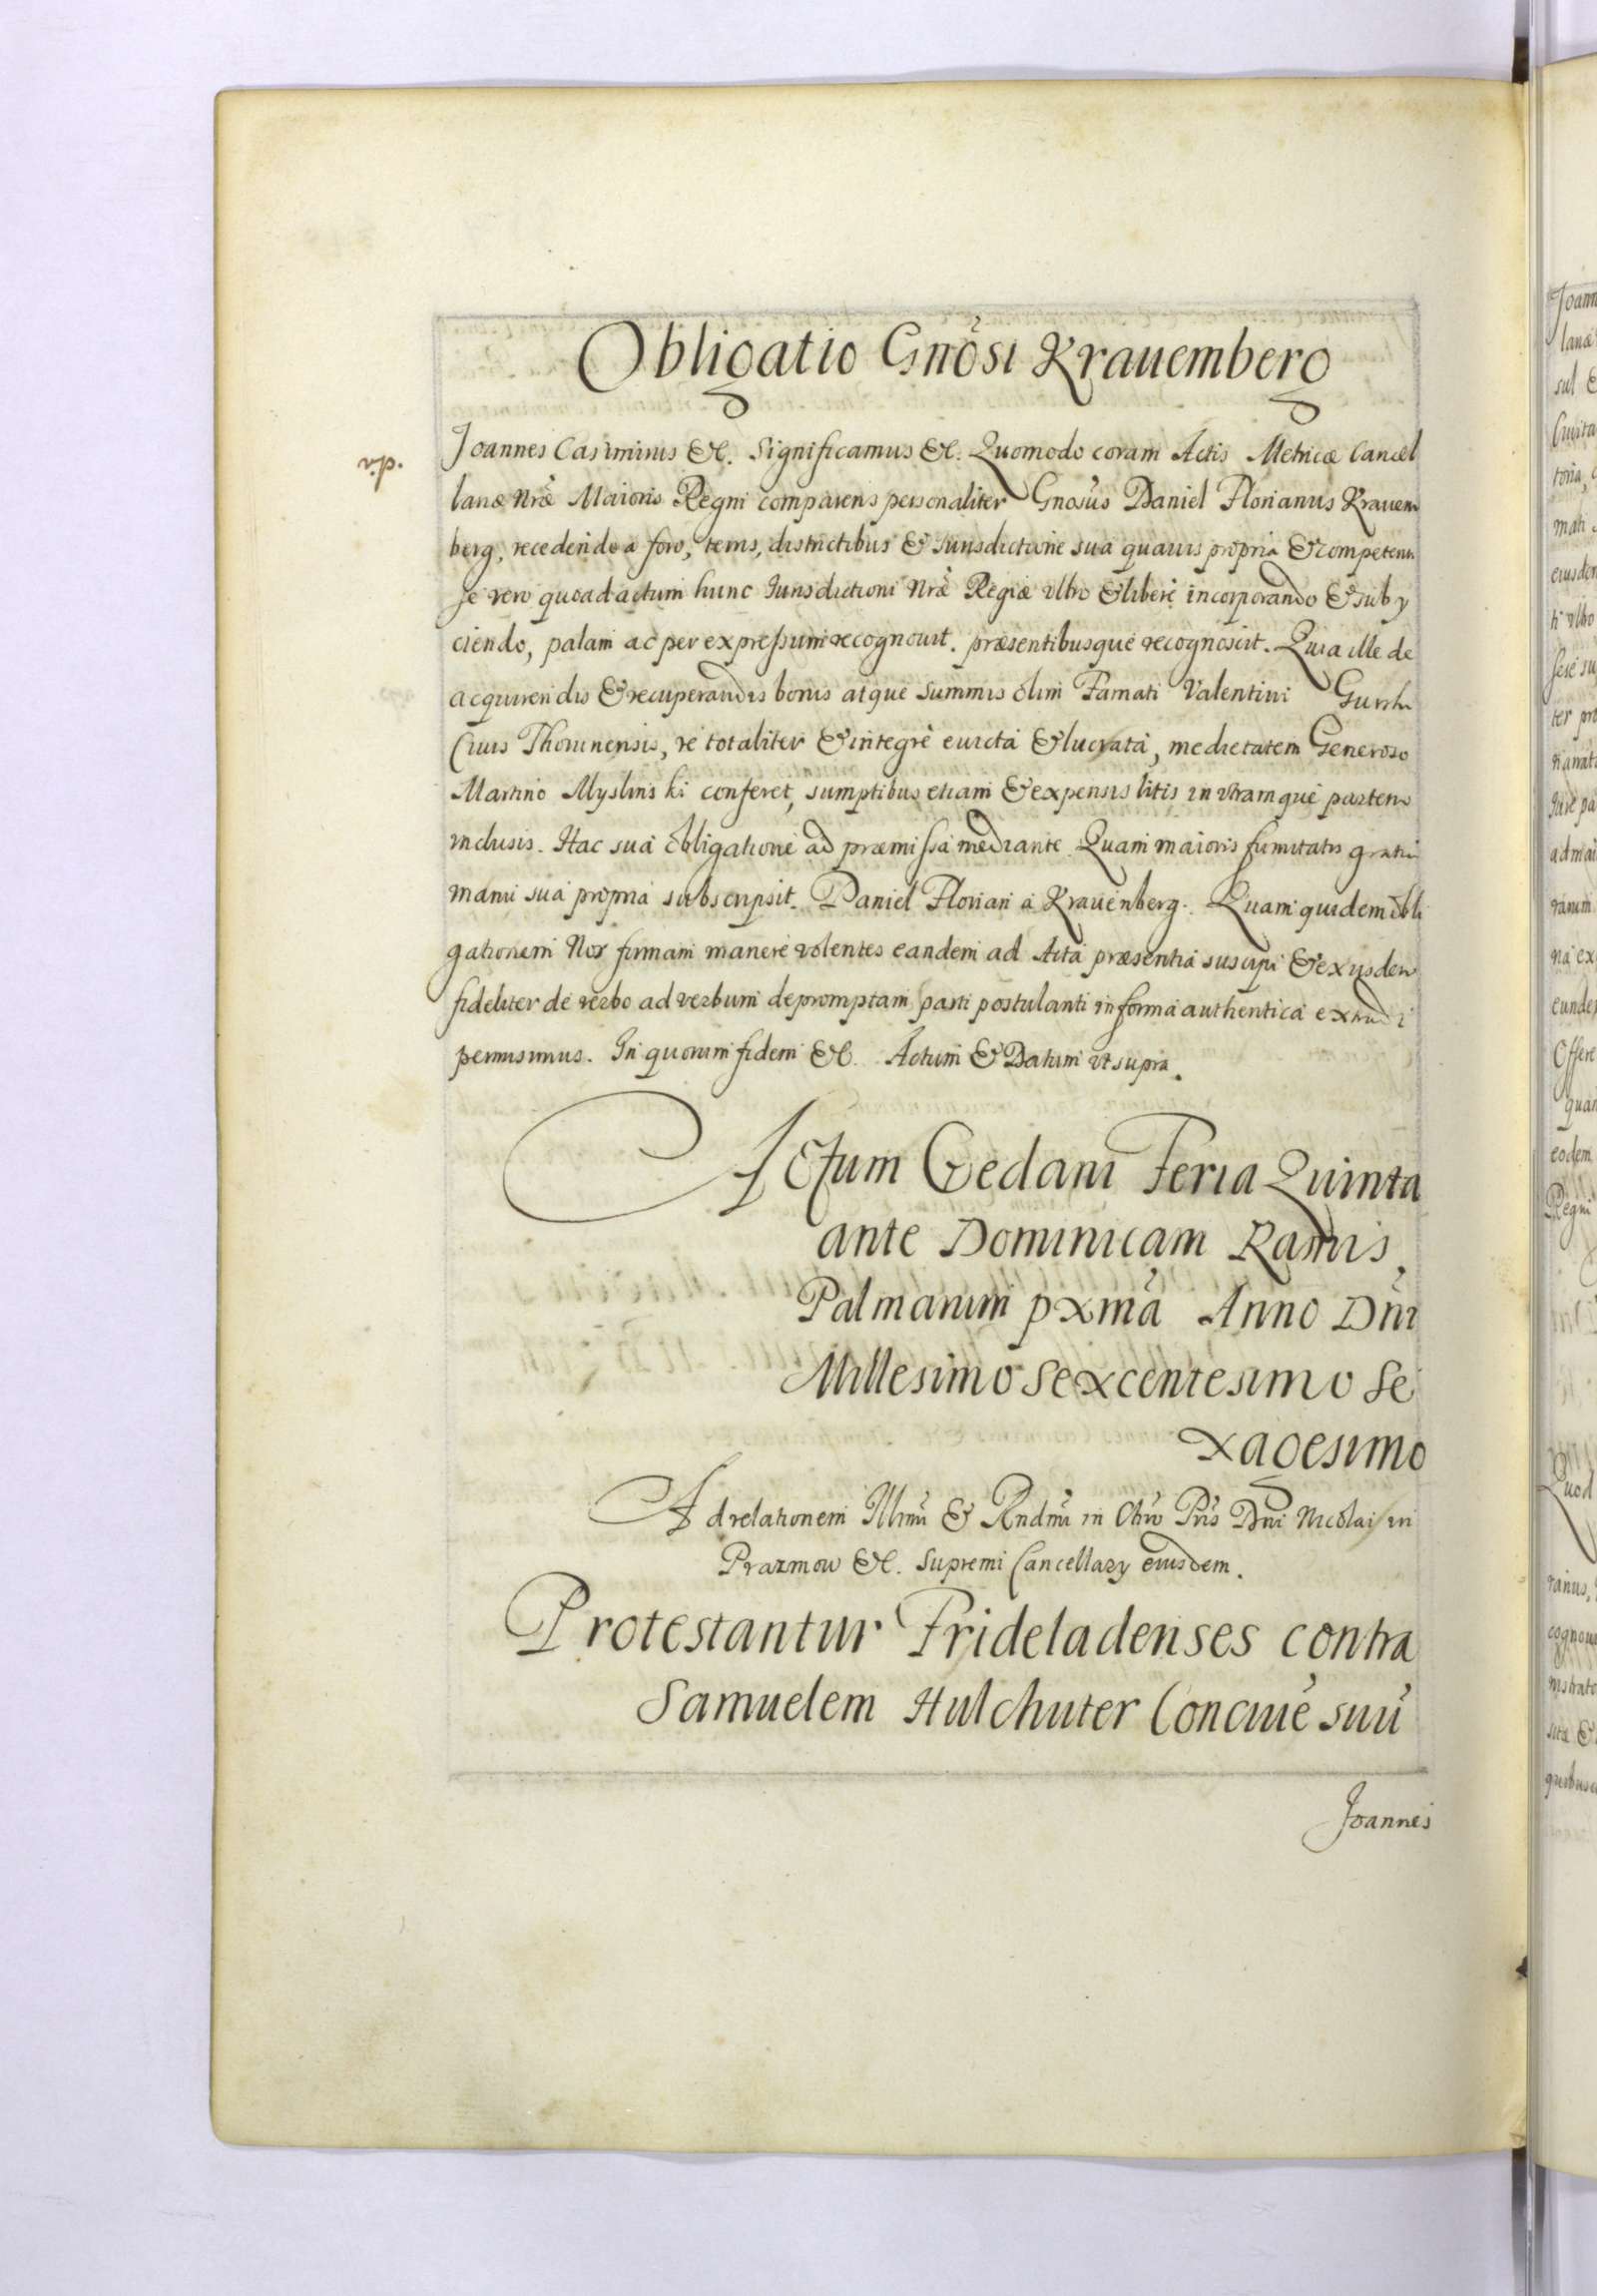 Obligatio Gnosi Krauemberg
vid.
Joannes Casimirus &c. Significamus &c. Quomodo coram Actis Metricæ Cancel
lariæ Nræ Maioris Regni comparens personaliter Gnosus Daniel Florianus Krauem
berg, recedendo a foro, terris, districtibus & Iurisdictione sua quauis propria & competenti
se vero quoad actum hunc Iurisdictioni Nræ Regiæ vltro & libere incorporando & suby
ciendo, palam ac per expressum recognouit. præsentibusque recognoscit. Quia ille de
acquirendis & recuperandis bonis atque summis olim Famati Valentini
Ciuis Thorunensis, re totaliter & integrè euicta & lucrata, medietatem Generoso
Martino Myslinski conferet, sumptibus etiam & expensis litis in vtramque partem
inclusis. Hac sua obligatione ad præmissa mediante. Quam maioris firmitatis gratia
manu sua propria subscripsit. Daniel Florian à Krauenberg. Quam quidem obli
gationem Nos firmam manere volentes eandem ad Acta præsentia suscipi & ex ijsdem
fideliter de verbo ad verbum depromptam parti postulanti in forma authentica extradi
permisimus. In quorum fidem &c. Actum & Datum vt supra.
Actum Gedani Feria Quinta
ante Dominicam Ramis
Palmarum pxma Anno Dni
Millesimo Sexcentesimo Se
xagesimo
Ad relationem Illmi & Rndmi in Chro Pris Dni Nicolai in
Prazmow &c. Supremi Cancellary eiusdem.
Protestantur Frideladenses contra
Samuelem Hulchuter Conciue suu
Joannes